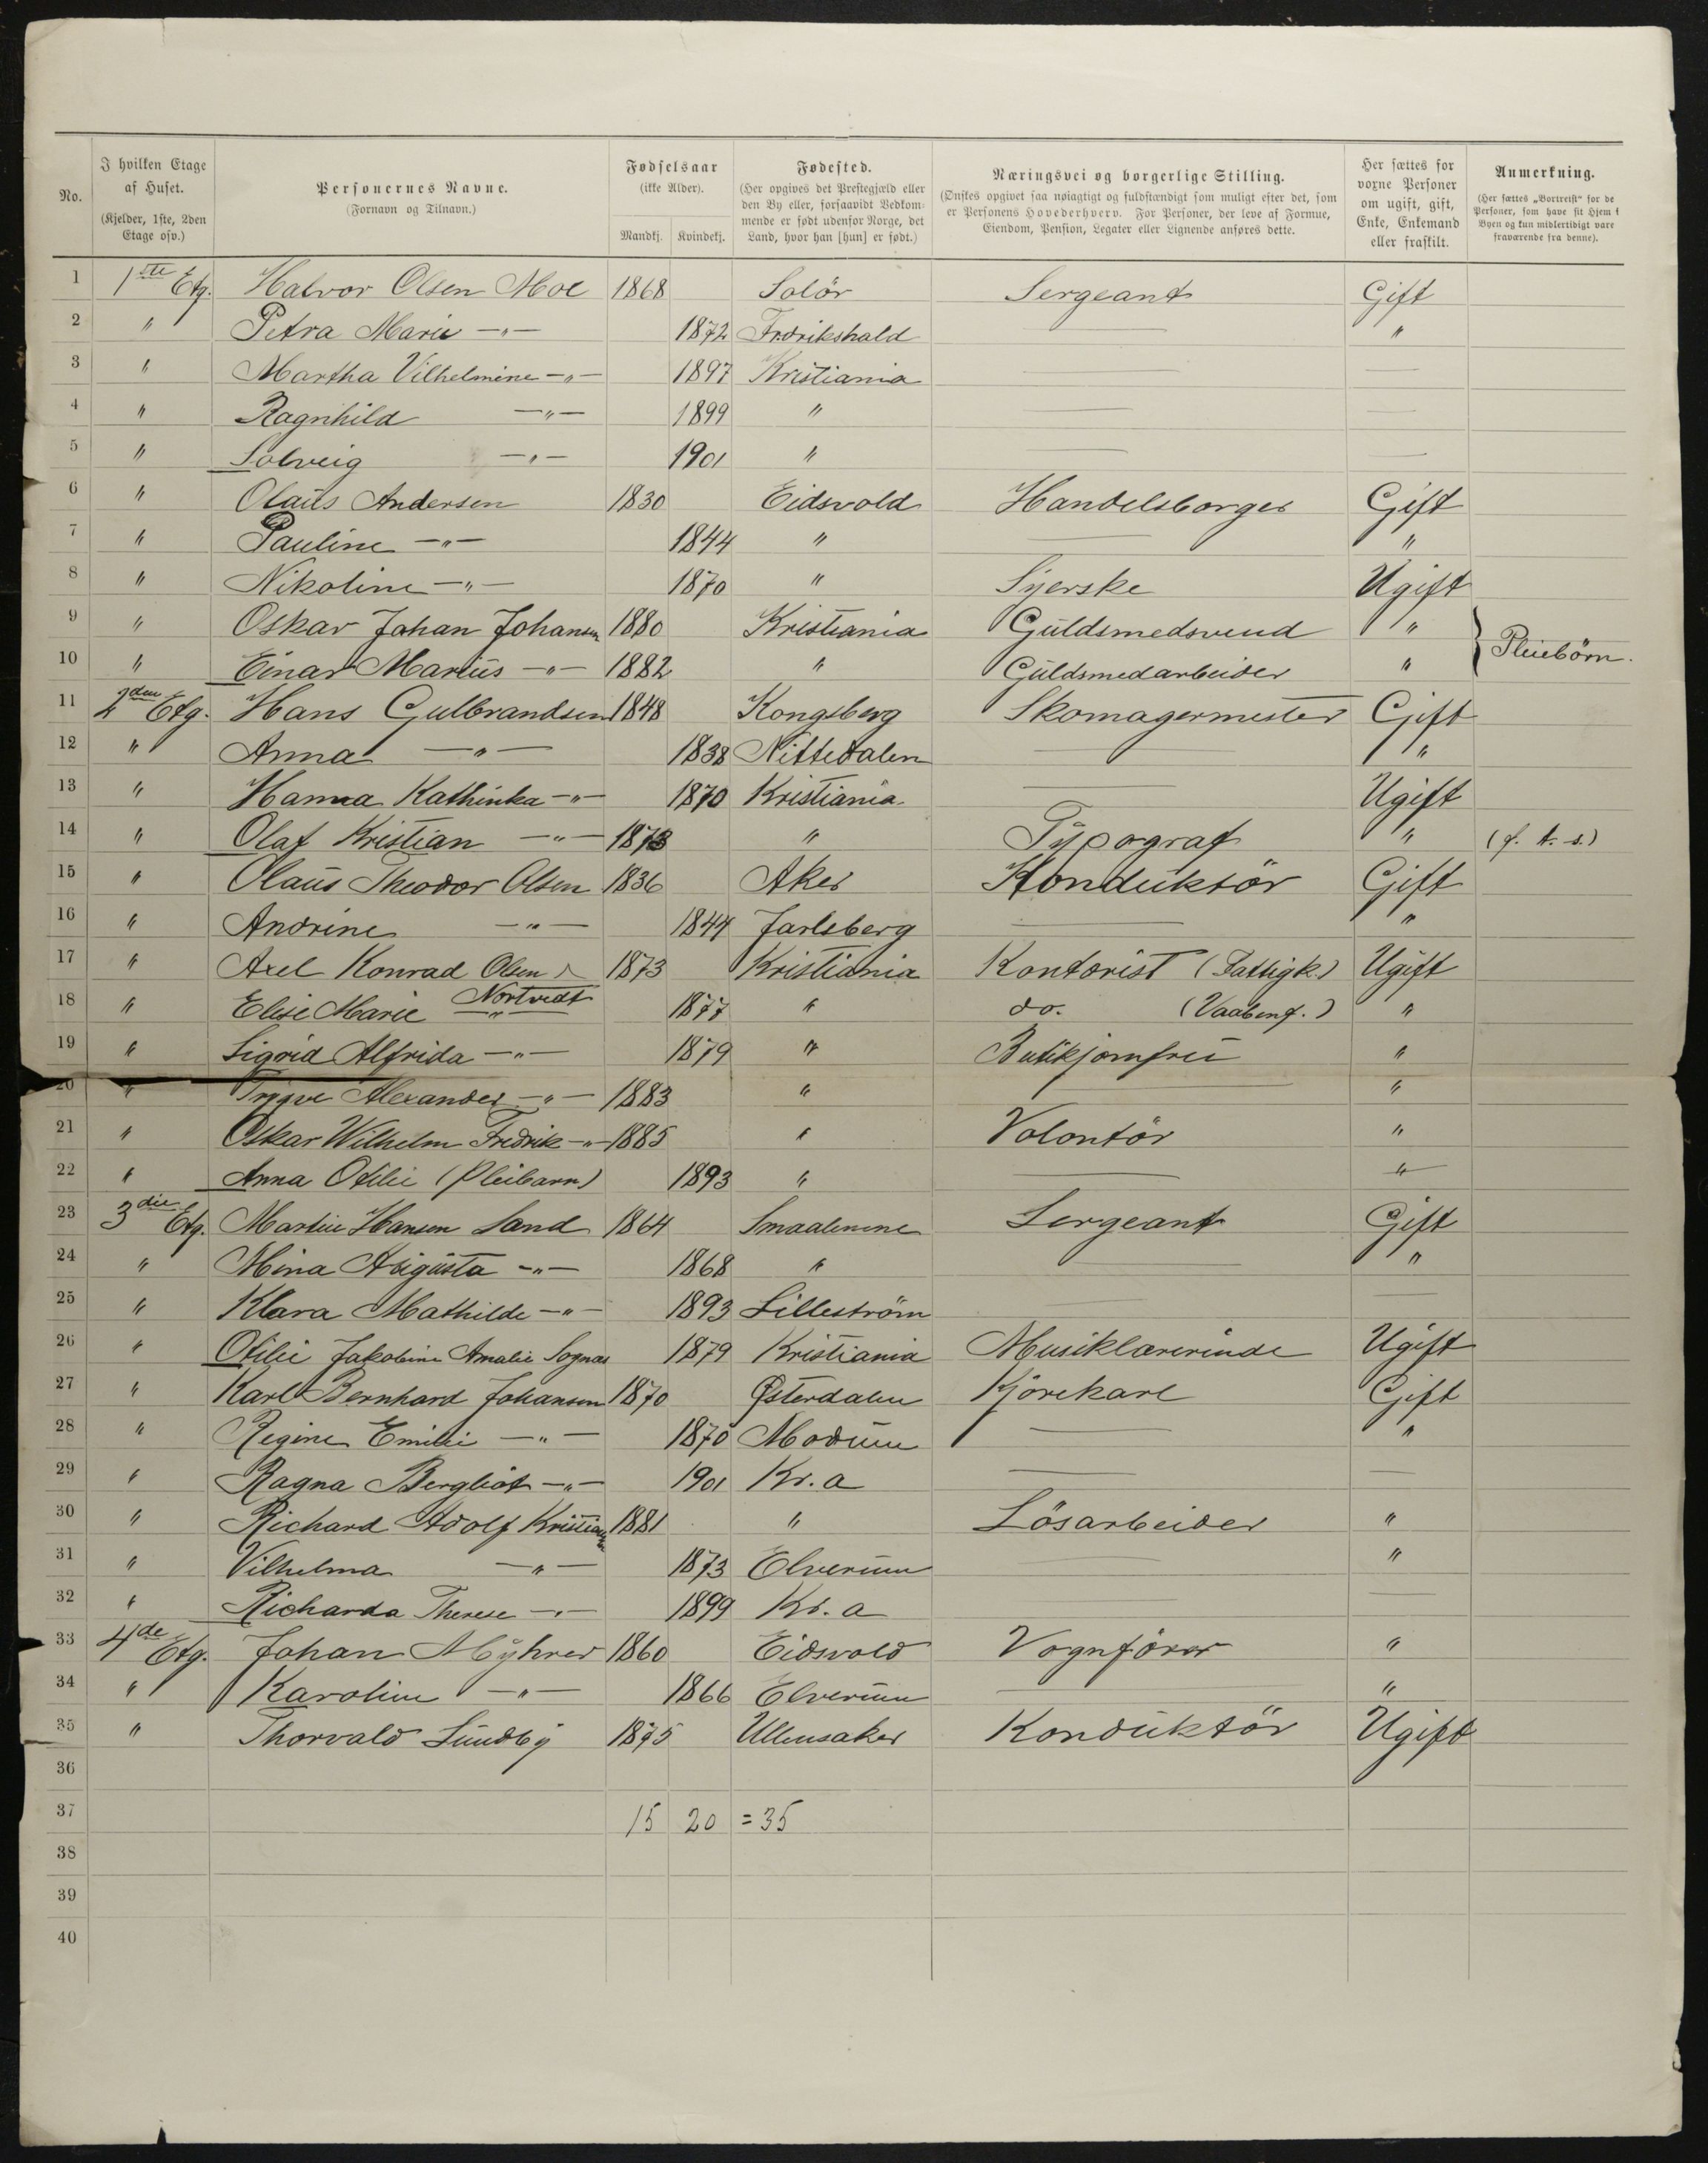 No.
I hvilken Etage
af Huset.
(Kjelder, 1ste, 2den
Etage osv.)
Personernes Navne.
(Fornavn og Tilnavn.)
Fødselsaar
(ikke Alder).
Mandkj. Kvindekj.
Fødested.
(Her opgives det Prestegjæld eller
den By eller, forsaavidt Vedkom-
mende er født udenfor Norge, det
Land, hvor han [hun] er født.)
Næringsvei og borgerlige Stilling.
(Ønskes opgivet saa nøiagtigt og fuldstændigt som muligt efter det, som
er Personens Hovederhverv. For Personer, der leve af Formue,
Eiendom, Pension, Legater eller Lignende anføres dette.
Her sættes for
voxne Personer
om ugift, gift,
Enke, Enkemand
eller fraskilt.
Anmerkning.
(Her sættes „Bortreist“ for de
Personer, som have sit Hjem i
Byen og kun midlertidigt vare
fraværende fra denne).
1 1ste Etg. Halvor Olsen Moe 1868 Solör Sergeant Gift
2 " Petra Marie -"- 1872 Fredrikshald — "
3 " Martha Vilhelmine -"- 1897 Kristiania — —
4 " Ragnhild -"- 1899 " — —
5 " Solveig -"- 1901 " — —
6 " Olaus Andersen 1830 Eidsvold Handelsborger Gift
7 " Pauline -"- 1844 " — "
8 " Nikoline -"- 1870 " Syerske Ugift
9 " Oskar Johan Johansen 1880 Kristiania Guldsmedsvend " } Pleiebörn.
10 " Einar Marius -"- 1882 " Guldsmedarbeider "
11 2den Etg. Hans Gulbrandsen 1848 Kongsberg Skomagermester Gift
12 " Anna -"- 1838 Nittedalen — "
13 " Hanna Kathinka -"- 1870 Kristiania — Ugift
14 " Olaf Kristian -"- 1873 " Typograf " (f. A. s.)
15 " Olaus Theodor Olsen 1836 Aker Konduktör Gift
16 " Andrine -"- 1844 Jarlsberg — "
17 " Axel Konrad Olsen 1873 Kristiania Kontorist (Fattigk.) Ugift
Nortvedt
18 " Elise Marie -"- 1877 " do. (Vaabenf.) "
19 " Sigrid Alfrida -"- 1879 " Butikjomfru "
20 " Trygve Alexander -"- 1883 " — "
21 " Oskar Wilhelm Fredrik -"- 1885 " Volontör "
22 " Anna Otilie (Pleiebarn) 1893 " — "
23 3die Etg. Martin Hansen Sand 1864 Smaalenene Sergeant Gift
24 " Mina Augusta -"- 1868 " — "
25 " Klara Mathilde -"- 1893 Lilleström — —
26 " Otilie Jakobine Amalie Sognæs 1879 Kristiania Musiklærerinde Ugift
27 " Karl Bernhard Johansen 1870 Østerdalen Kjörekarl Gift
28 " Regine Emilie -"- 1870 Modum — "
29 " Ragna Bergliot -"- 1901 Kr.a — —
30 " Richard Adolf Kristiansen 1881 " Lösarbeider "
31 " Vilhelma -"- 1873 Elverum — "
32 " Richarda Therese -"- 1899 Kr.a — —
33 4de Etg. Johan Myhrer 1860 Eidsvold Vognförer "
34 " Karoline -"- 1866 Elverum — "
35 " Thorvald Lundby 1875 Ullensaker Konduktör Ugift
36
37 15 20 = 35
38
39
40